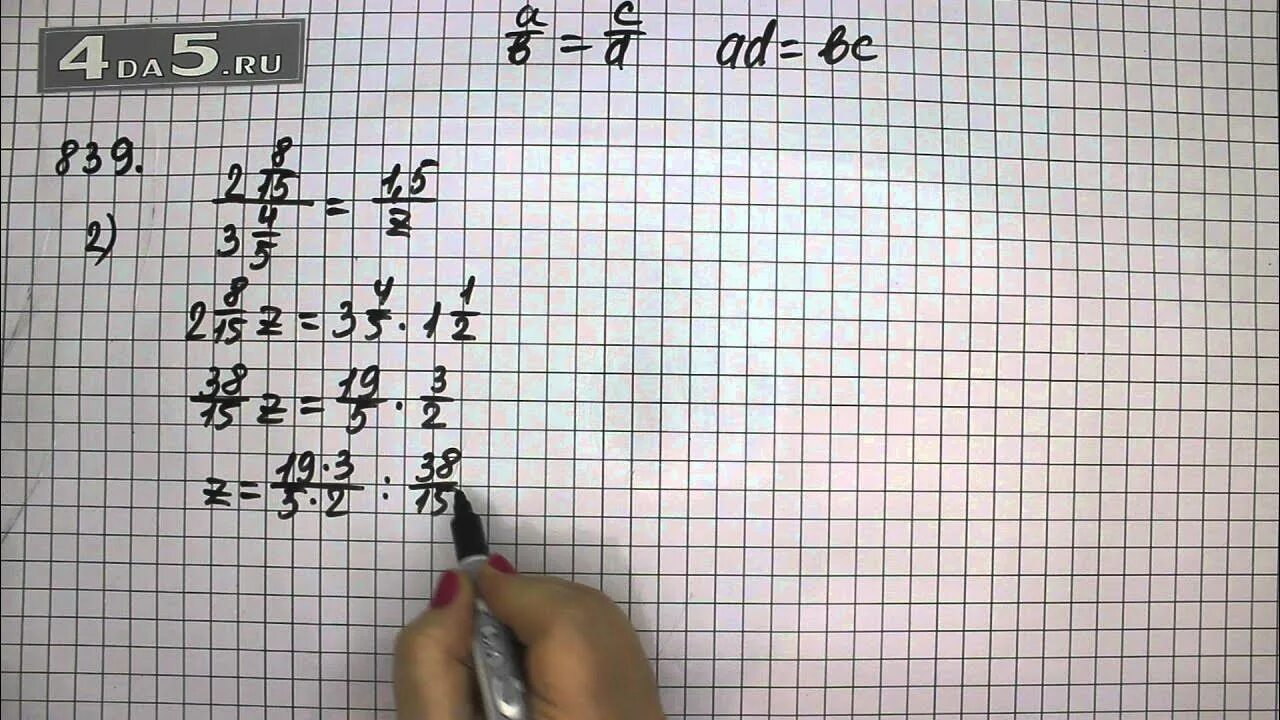 4DA5.RU
a/b = c/d ad = bc
839.
2) 2 8/15 / 3 4/5 = 1,5/z
2 8/15 z = 3 4/5 · 1 1/2
38/15 z = 19/5 · 3/2
z = 19·3/5·2 : 38/15